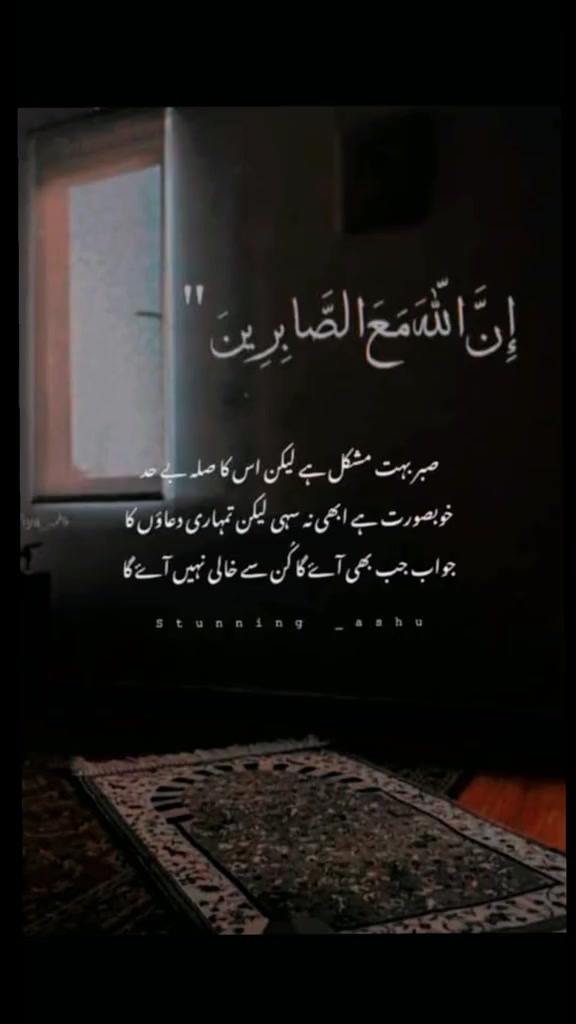 إِنَّ اللَّهَ مَعَ الصَّابِرِينَ "
صبر بہت مشکل ہے لیکن اس کا صلہ بے حد
خوبصورت ہے ابھی نہ سہی لیکن تمہاری دعاؤں کا
جواب جب بھی آئے گا کُن سے خالی نہیں آئے گا
Stunning _ashu